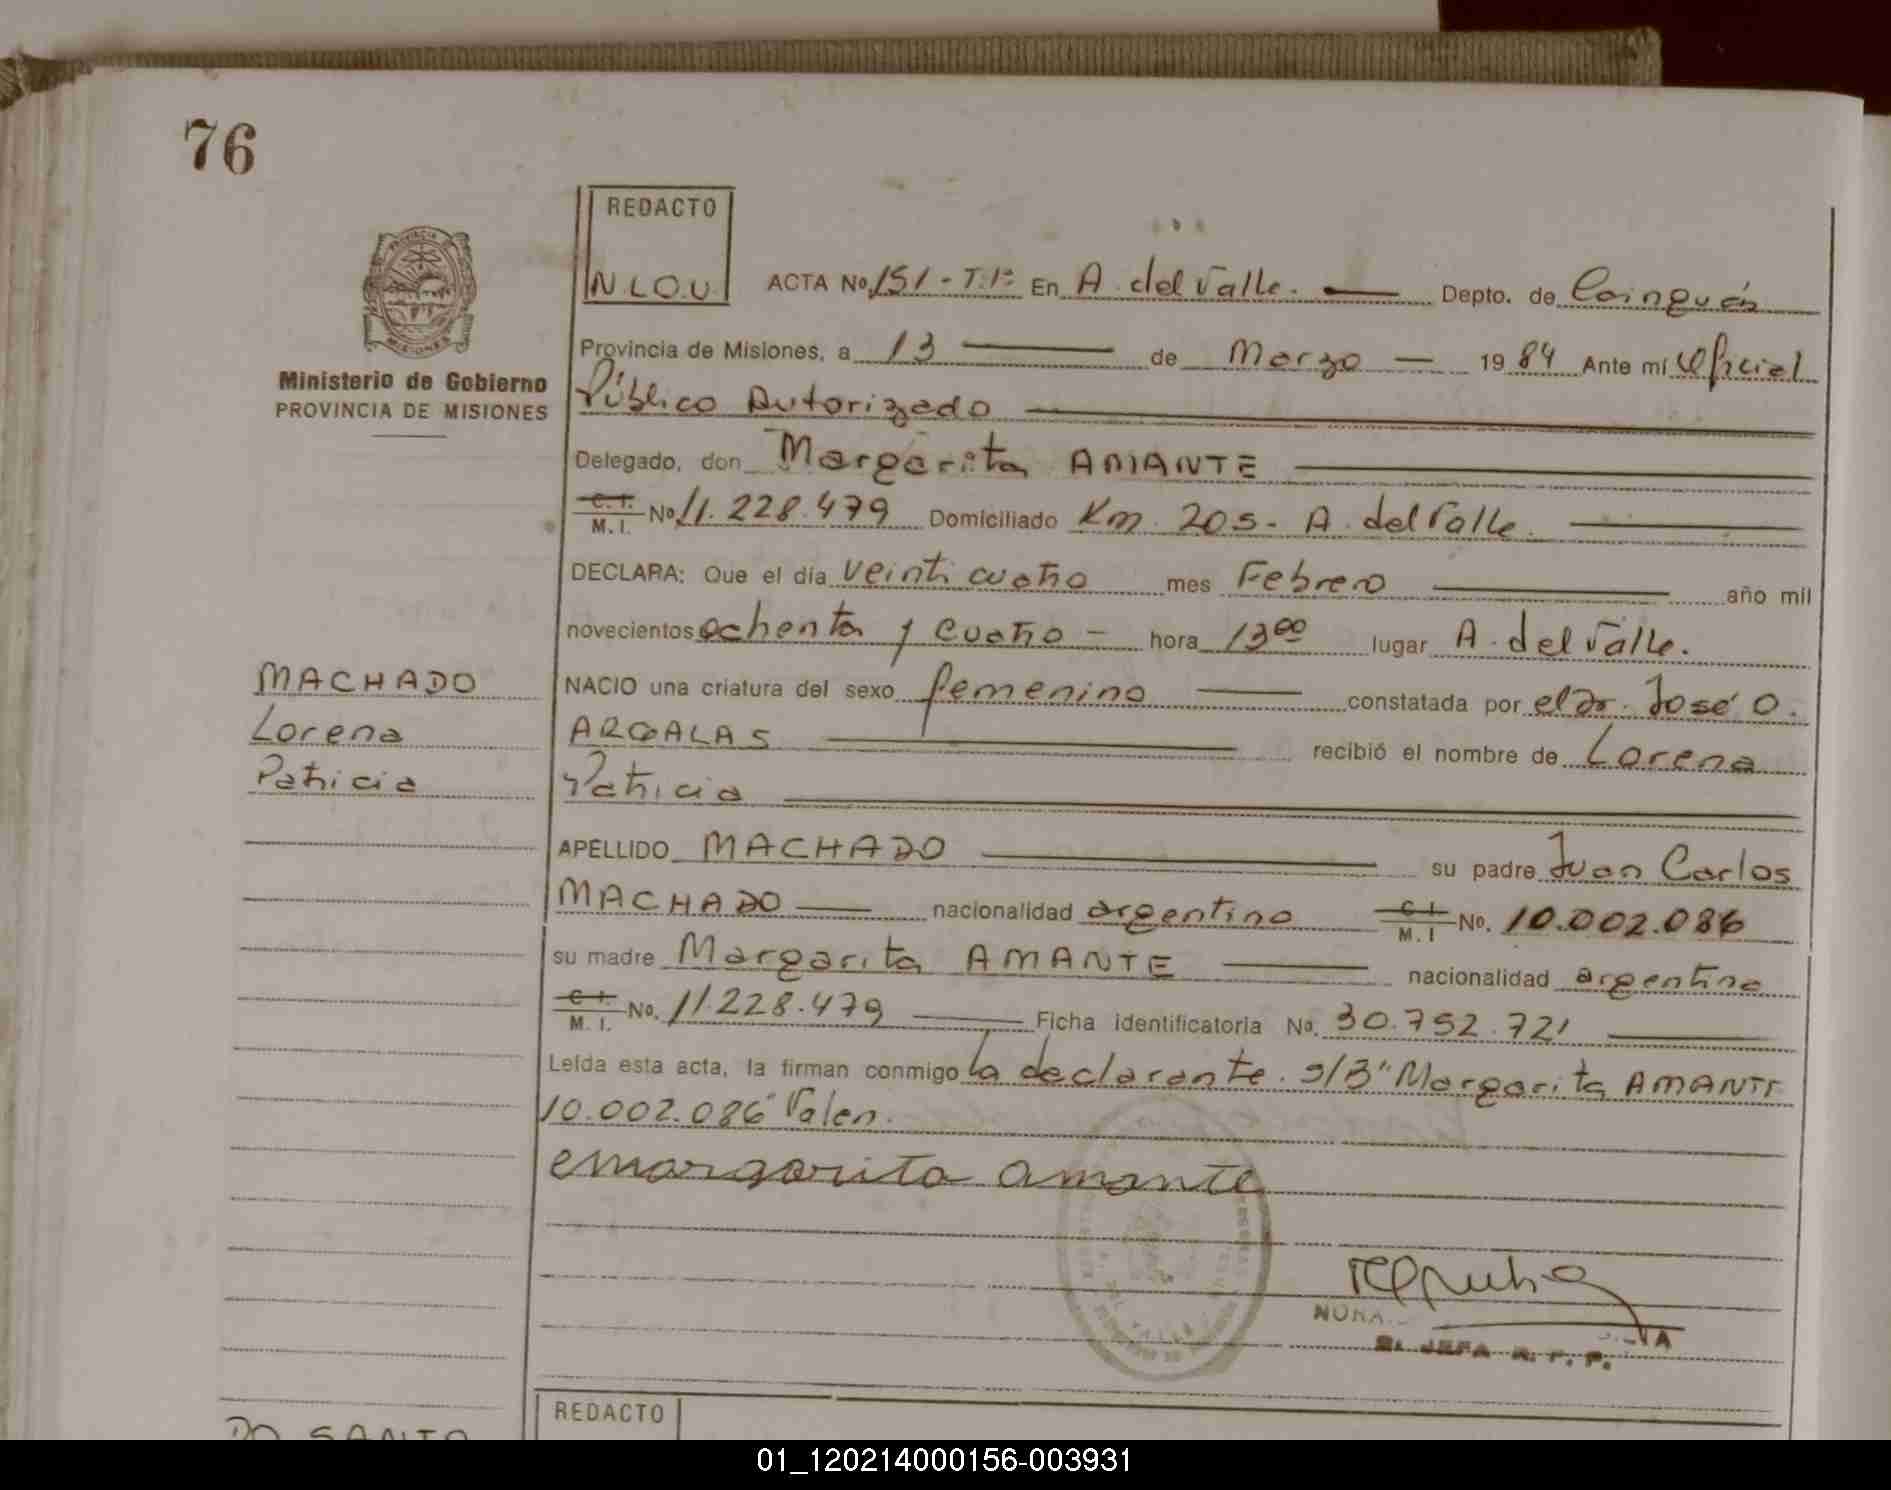 76
REDACTO
N.L.O.U.
ACTA No. 151 - T. 1º En A. del Valle. Depto. de Cainguás
Provincia de Misiones, a 13 de Marzo 1984 Ante mí Oficial
Ministerio de Gobierno
PROVINCIA DE MISIONES
Público Autorizado
Delegado, don Margarita AMANTE
C. I. M. I. No. 11.228.479 Domiciliado Km. 205 - A. del Valle.
DECLARA: Que el día veinti cuatro mes Febrero año mil
novecientos ochenta y cuatro - hora 13 00 lugar A. del Valle.
MACHADO
Lorena
Patricia
NACIO una criatura del sexo femenino constatada por el Dr. José O.
ARGALAS recibió el nombre de Lorena
Patricia
APELLIDO MACHADO su padre Juan Carlos
MACHADO nacionalidad argentino C. I. M. I No. 10.002.086
su madre Margarita AMANTE nacionalidad argentina
C. I. M. I. No. 11.228.479 Ficha identificatoria No. 30.752.721
Leída esta acta, la firman conmigo la declarante. S/B "Margarita AMANTE
10.002.086" Valen.
margarita amante
NORA
JEFA R. P. P.
REDACTO
DO SANTO
01_120214000156-003931